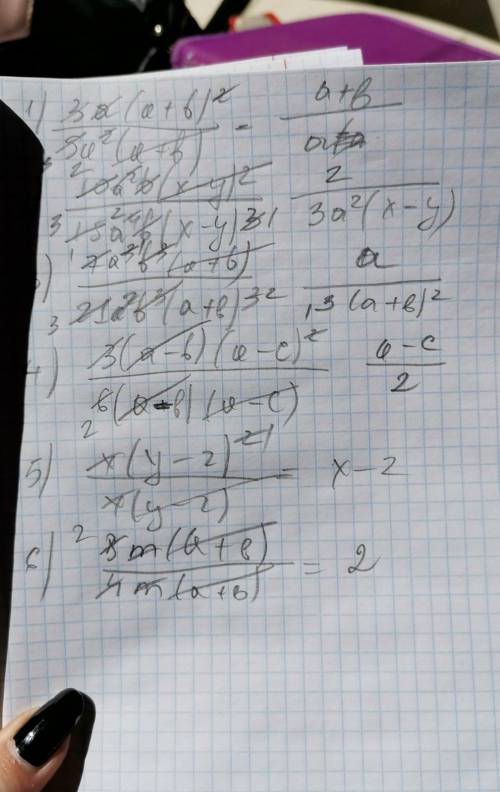 1) 3a(a+b)² / 3a²(a+b) = a+b / a
10a²b(x-y)² / 15a⁴b(x-y)³ 2 / 3a²(x-y)
3) 7a³b³(a+b) / 21a²b³(a+b)³ a / 3(a+b)²
4) 3(a-b)(a-c)² / 6(a-b)(a-c) a-c / 2
5) x(y-z)² / x(y-z) = x-z
6) 8m(a+b) / 4m(a+b) = 2